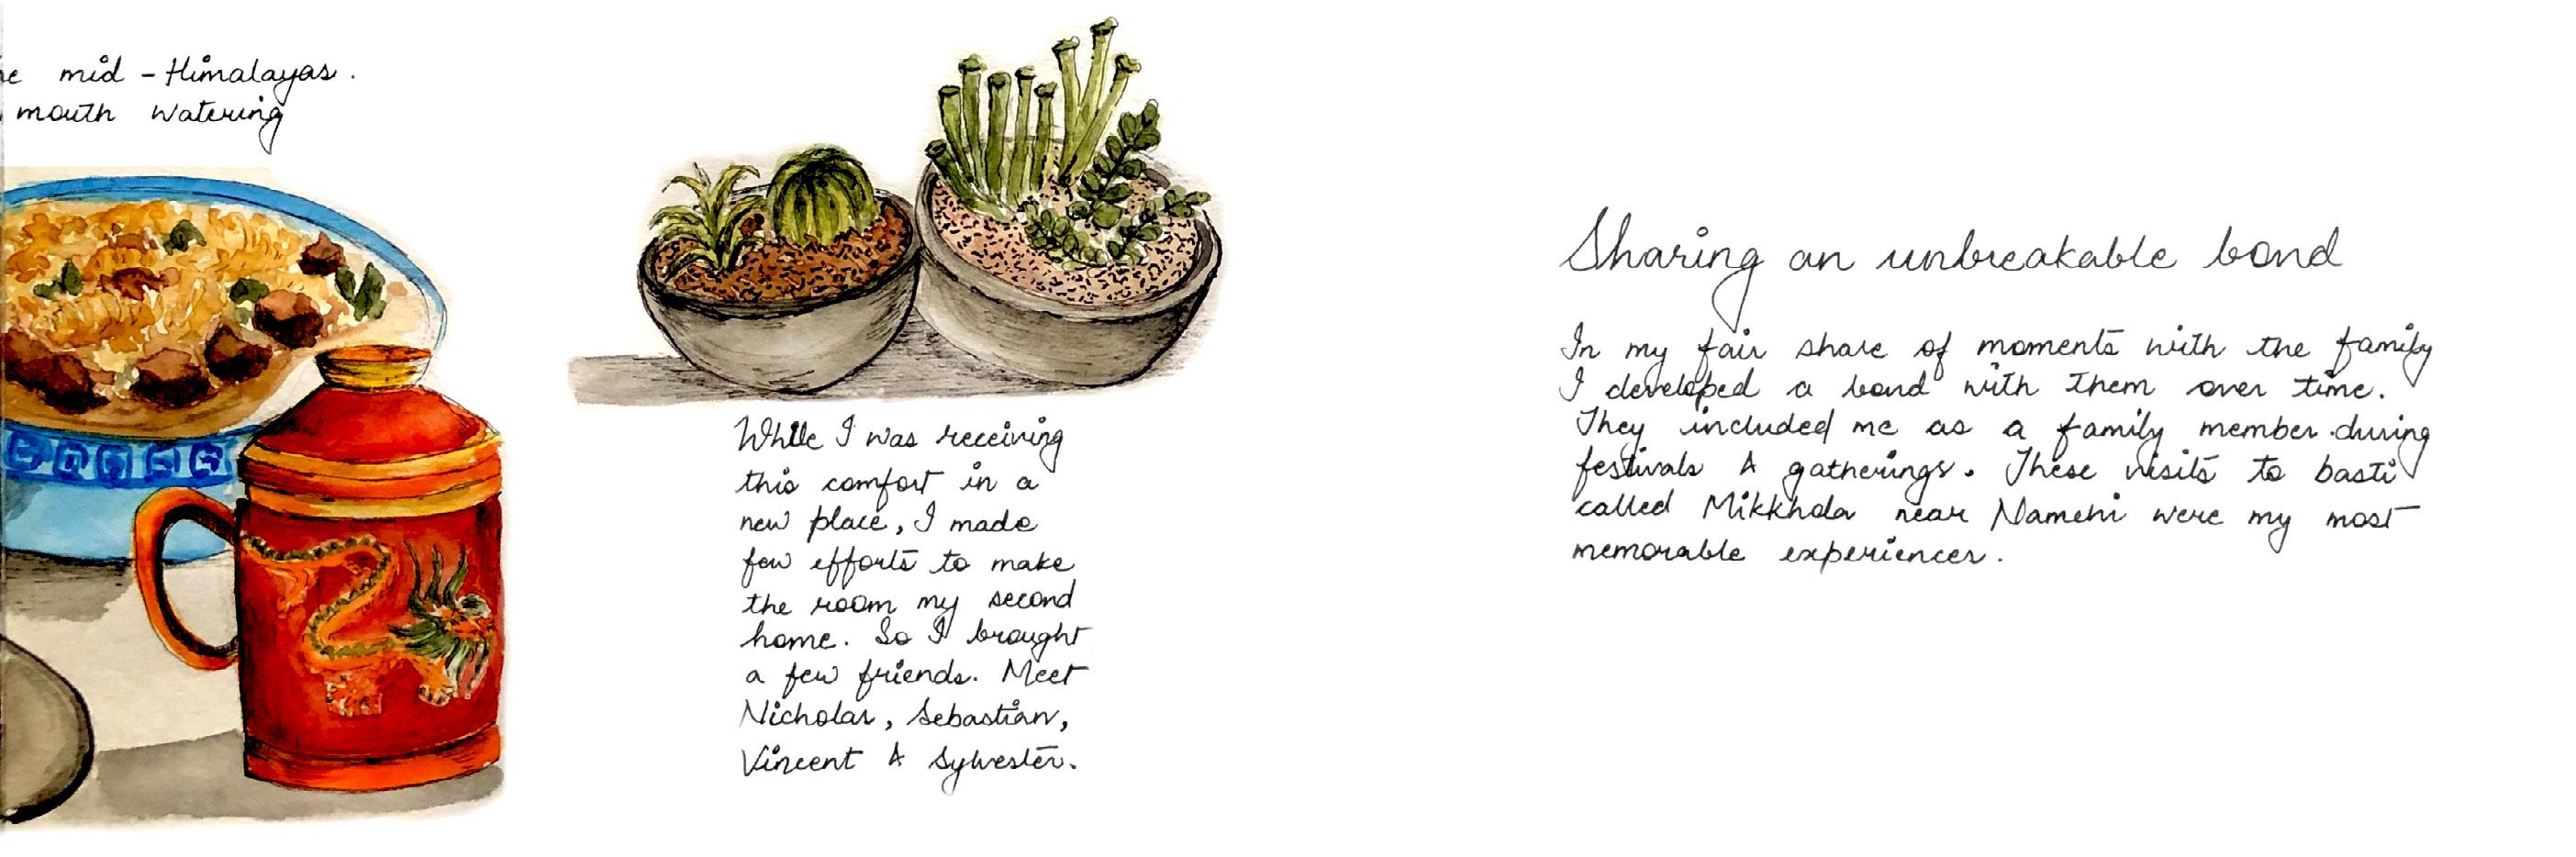 mid - Himalayas.
mouth watering
While I was receiving
this comfort in a
new place, I made
few efforts to make
the room my second
home. So I brought
a few friends. Meet
Nicholas, Sebastian,
Vincent & Sylvester.
Sharing an unbreakable bond
In my fair share of moments with the family
I developed a bond with them over time.
They included me as a family member during
festivals & gatherings. These visits to basti
called Mikkhola near Namchi were my most
memorable experiences.